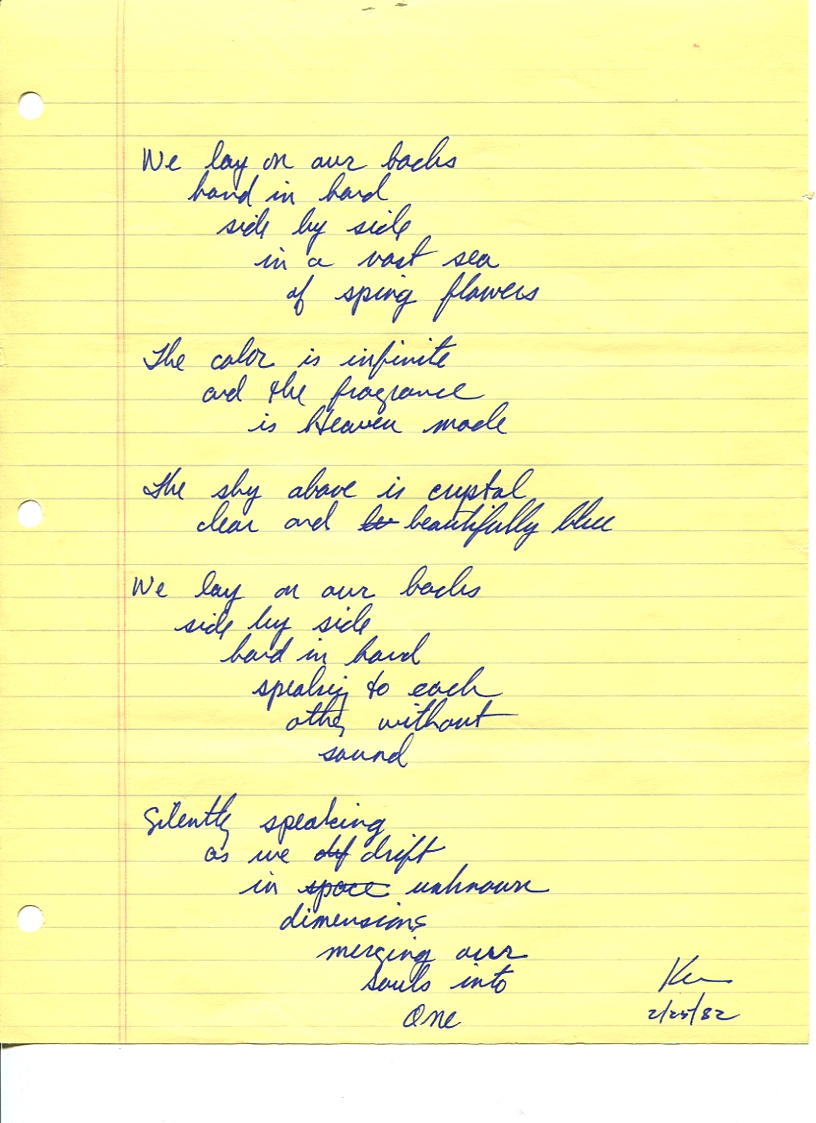 We lay on our backs
hand in hand
side by side
in a vast sea
of sping flowers
The color is infinite
and the fragrance
is Heaven made
The sky above is crystal
clear and be beautifully blue
We lay on our backs
side by side
hand in hand
speaking to each
other without
sound
Silently speaking
as we drif drift
in space unknown
dimensions
merging our
souls into
One
Ken
2/25/82